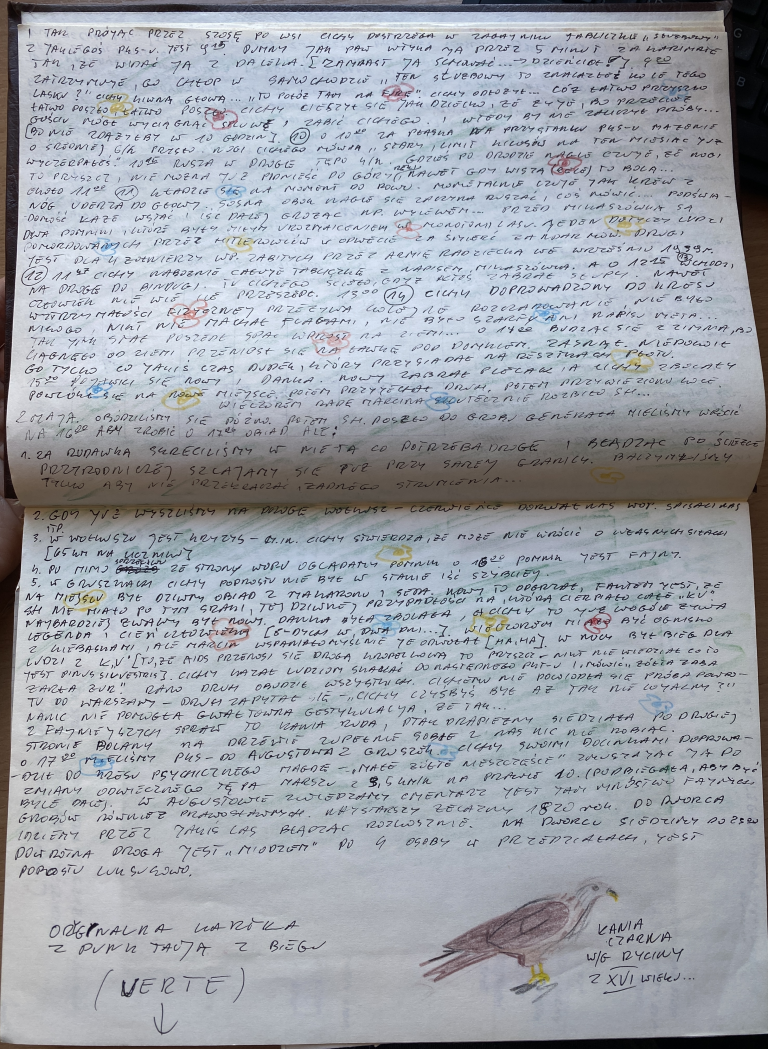 1 TAK PRÓJĄC PRZEZ SZOSĘ PO WSI CICHY DOSTRZEGA W ZAGAJNIKU TABLICZKĘ
Z JAKIEGOŚ PKS-U. JEST 9¹⁵ DUMNY JAK PAW WTYKA JĄ PRZEZ 5 MINUT ZA KARIMATĘ
TAK, ŻE WIDAĆ JĄ Z DALEKA. [ZAMIAST JĄ SCHOWAĆ... 9²⁰
ZATRZYMUJE GO CHŁOP W SAMOCHODZIE „TEN SŁUBOWY TO ZNALAZŁEŚ KOLE TEGO
LASKU?" CICHY KIWNĄ GŁOWĄ... „TO POŁÓŻ TAM NA CICHY ODŁOŻYŁ... CÓŻ ŁATWO PRZYSZŁO
ŁATWO POSZŁO CICHY CIESZYŁ SIĘ JAK DZIECKO, ŻE ŻYJE, BO PRZECIEŻ
GOŚCIU MÓGŁ WYCIĄGNĄĆ I ZABIĆ CICHEGO I WTEDY BY NIE ZALICZYŁ PRÓBY...
[BO NIE ZDĄŻYŁBY W 10 GODZIN]. (10) O 10²⁰ ZA PŁASKA NA PRZYSTANKU PKS-U MARZENIE
O ŚREDNIEJ 6/H PRYSŁO. NOGI CICHEGO MÓWIĄ „STARY, LIMIT KROKÓW NA TEN MIESIĄC JUŻ
WYCZERPAŁEŚ" RUSZA W DROGĘ TĘPO 4/H. GDZIEŚ PO DRODZE NAGLE CZUJE, ŻE NOGI
TO PRYSZCZ. NIE MOŻNA JUŻ PODNIEŚĆ DO GÓRY RĘKI, NAWET GDY WISZĄ TO BOLĄ...
OKOŁO 11²⁰ (11) KŁADZIE SIĘ NA MOMENT DO ROWU. MOMENTALNIE CZUJE JAK KREW Z
NÓG UDERZA DO GŁOWY. SOSNA OBOK NAGLE SIĘ ZACZYNA RUSZAĆ, COŚ MÓWIĆ... PODŚWIA-
DOMOŚĆ KAŻE WSTAĆ I IŚĆ DALEJ GROŻĄC NP. WYLEWEM... PRZED MIKASZÓWKĄ SĄ
DWA POMNIKI, KTÓRE BYŁY MIŁYM URZOMAICENIEM W MONOTONII LASU. JEDEN DOTYCZY LUDZI
POMORDOWANYCH PRZEZ HITLEROWCÓW W ODWECIE ZA ŚMIERĆ ŻANDARMÓW, DRUGI
JEST DLA ŻOŁNIERZY WP. ZABITYCH PRZEZ ARMIĘ RADZIECKĄ WE WRZEŚNIU 1939R.
(12) 11⁴⁵ CICHY NABOŻNIE CAŁUJE TABLICZKĘ Z NAPISEM MIKASZÓWKA, A O 12¹⁵ WCHODZI
NA DROGĘ DO RUDAWKI. TU CICHEGO ŚCIĘŁO, GDYŻ JAKIŚ NAWET
CZŁOWIEK NIE WIE ILE PRZESZEDŁ. 13⁰⁰ (14) CICHY DOPROWADZONY DO KRESU
WYTRZYMAŁOŚCI FIZYCZNEJ PRZEŻYWA KOLEJNE ROZCZAROWANIE, NIE BYŁO
NIKOGO, NIKT NIE MACHAŁ FLAGAMI, NIE BYŁO SZARFY ANI NAPISU META...
TAK JAK STAŁ POSZEDŁ SPAĆ WPROST NA ZIEMI... O 14²⁰ BUDZĄC SIĘ Z ZIMNA, BO
CIĄGNĘŁO OD ZIEMI PRZENIÓSŁ SIĘ NA ŁAWKĘ POD DOMKIEM. ZASNĄŁ. NIEPOKOIŁ
GO TYLKO CO JAKIŚ CZAS DUDEK, KTÓRY PRZYSIADAŁ NA RESZTKACH PŁOTU.
15²⁰ POJAWIŁ SIĘ NOWY I DANKA. NOWY ZABRAŁ PLECAK A CICHY ZBOLAŁY
POWLÓKŁ SIĘ NA NOWE MIEJSCE. POTEM PRZYJECHAŁ DRUH, POTEM PRZYWIEZIONO KOCE.
WIECZOREM RADĘ MARCINA SKUTECZNIE ROZBIŁO SH...
2 MAJA. OBUDZILIŚMY SIĘ PÓŹNO. POTEM SH. POSZŁO DO GROBU GENERAŁA MIELIŚMY WRÓCIĆ
NA 16⁰⁰ ABY ZROBIĆ O 17⁰⁰ OBIAD ALE:
1. ZA RUDAWKĄ SKRĘCILIŚMY W NIE TĄ CO POTRZEBA DROGĘ I BŁĄDZĄC PO ŚCIEŻCE
PRZYRODNICZEJ SZLAJAMY SIĘ TUŻ PRZY SAMEJ GRANICY. BACZYLIŚMY
TYLKO ABY NIE PRZEKRACZAĆ ŻADNEGO STRUMIENIA...
2. GDY JUŻ WYSZLIŚMY NA DROGĘ WOŁKUSZ - CZERWIENIEC DORWAŁ NAS WOP. SPISALI NAS
ITP.
3. W WOŁKUSZU JEST KRYZYS - M.IN. CICHY STWIERDZA, ŻE MOŻE NIE WRÓCIĆ O WŁASNYCH SIŁACH
[65 KM NA LICZNIKU]
4. PO MIMO SPRZECIWU ZE STRONY WOPU OGLĄDAMY POMNIK O 16²⁰ POMNIK JEST FAJNY.
5. W GRUSZKACH CICHY POPROSTU NIE BYŁ W STANIE IŚĆ SZYBCIEJ.
NA MIEJSCU BYŁ DZIWNY OBIAD Z MAKARONU I SERA. NOWY TO ODGRZAŁ, FAKTEM JEST, ŻE
SH NIE MIAŁO PO TYM SRAKI, TEJ DZIWNEJ PRZYPADŁOŚCI NA KTÓRĄ CIERPIAŁO CAŁE „KU"
NAJBARDZIEJ ŻWAWY BYŁ NOWY. DANKA BYŁA ZBOLAŁA A CICHY TO JUŻ WOGÓLE ŻYWA
LEGENDA I CIEŃ CZŁOWIEKA [8-DYCH W DWA DNI...]. WIECZOREM MIAŁO BYĆ OGNISKO
Z KIEŁBASKAMI, ALE MARCIN WSPANIAŁOMYŚLNIE JE ODWOŁAŁ [HA, HA]. W NOCY BYŁ BIEG DLA
LUDZI Z K,V [TO, ŻE AIDS PRZENOSI SIĘ DROGĄ KROPELKOWĄ TO PRYSZCZ - NIKT NIE WIEDZIAŁ CO TO
JEST PINUS SILVESTRIS]. CICHY KAZAŁ LUDZIOM SKAKAĆ DO NASTĘPNEGO PKT-U I MÓWIĆ „ŻÓŁTA ŻABA
ŻARŁA ŻUR". RANO DRUH OBUDZIŁ WSZYSTKICH. CICHEMU NIE POWIODŁA SIĘ PRÓBA POWRO-
TU DO WARSZAWY - DRUH ZAPYTAŁ SIĘ - „CICHY CZYŻBYŚ BYŁ AŻ TAK NIE LOJALNY?"
NA NIC NIE POMOGŁA GWAŁTOWNA GESTYKULACJA, ŻE TAK...
Z FAJNIEJSZYCH SPRAW TO KANIA RUDA, PTAK DRAPIEŻNY SIEDZIAŁA PO DRUGIEJ
STRONIE POLANY NA DRZEWIE ZUPEŁNIE SOBIE Z NAS NIC NIE ROBIĄC.
O 17²⁰ MIELIŚMY PKS - DO AUGUSTOWA Z GRUSZEK. CICHY SWOIMI DOCINKAMI DOPROWA-
DZIŁ DO KRESU PSYCHICZNEGO MAGDĘ - „MAŁE ŻÓŁTE NIESZCZĘŚCIE" ZMUSZAJĄC JĄ DO
ZMIANY ODWIECZNEGO TĘPA MARSZU Z 3,5 KM/H NA PRAWIE 10. (PODBIEGAŁA, ABY BYĆ
BYLE DALEJ. W AUGUSTOWIE ZWIEDZAMY CMENTARZ JEST TAM MNÓSTWO FAJNYCH
GROBÓW RÓWNIEŻ PRAWOSŁAWNYCH. KRZYŻ STARSZY ŻELAZNY 1820 ROK. DO DWORCA
IDZIEMY PRZEZ JAKIŚ LAS BŁĄDZĄC ROZKOSZNIE. NA DWORCU SIEDZIMY DO
POWROTNA DROGA JEST „MIODZIEM" PO 4 OSOBY W PRZEDZIAŁACH, JEST
POPROSTU LUKSUSOWO.
ORYGINALNA KARTKA
Z PUNKTACJĄ Z BIEGU
(VERTE)
↓
KANIA
CZARNA
W/G RYCINY
Z XVI WIEKU...